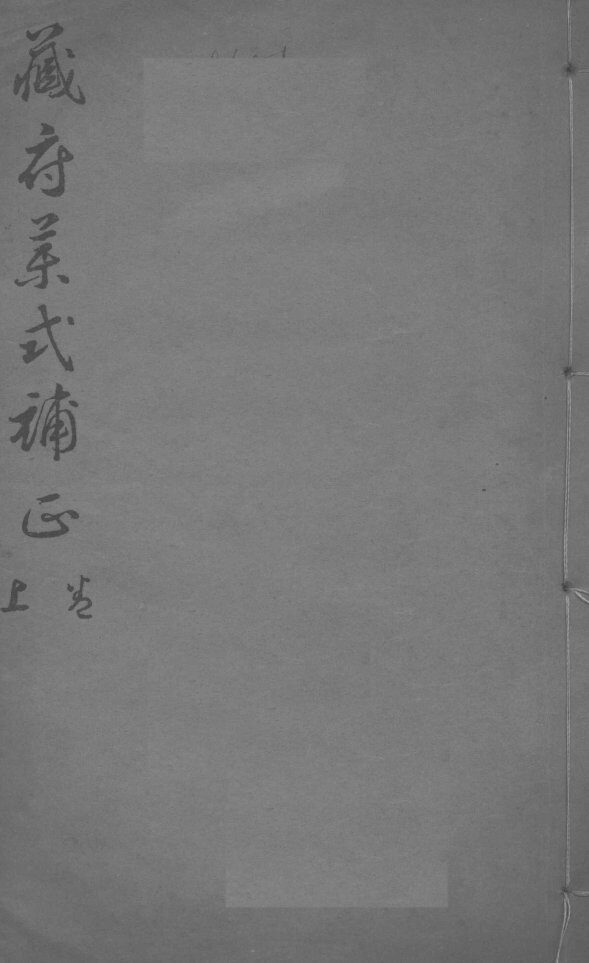 藏府葯式補正
卷上